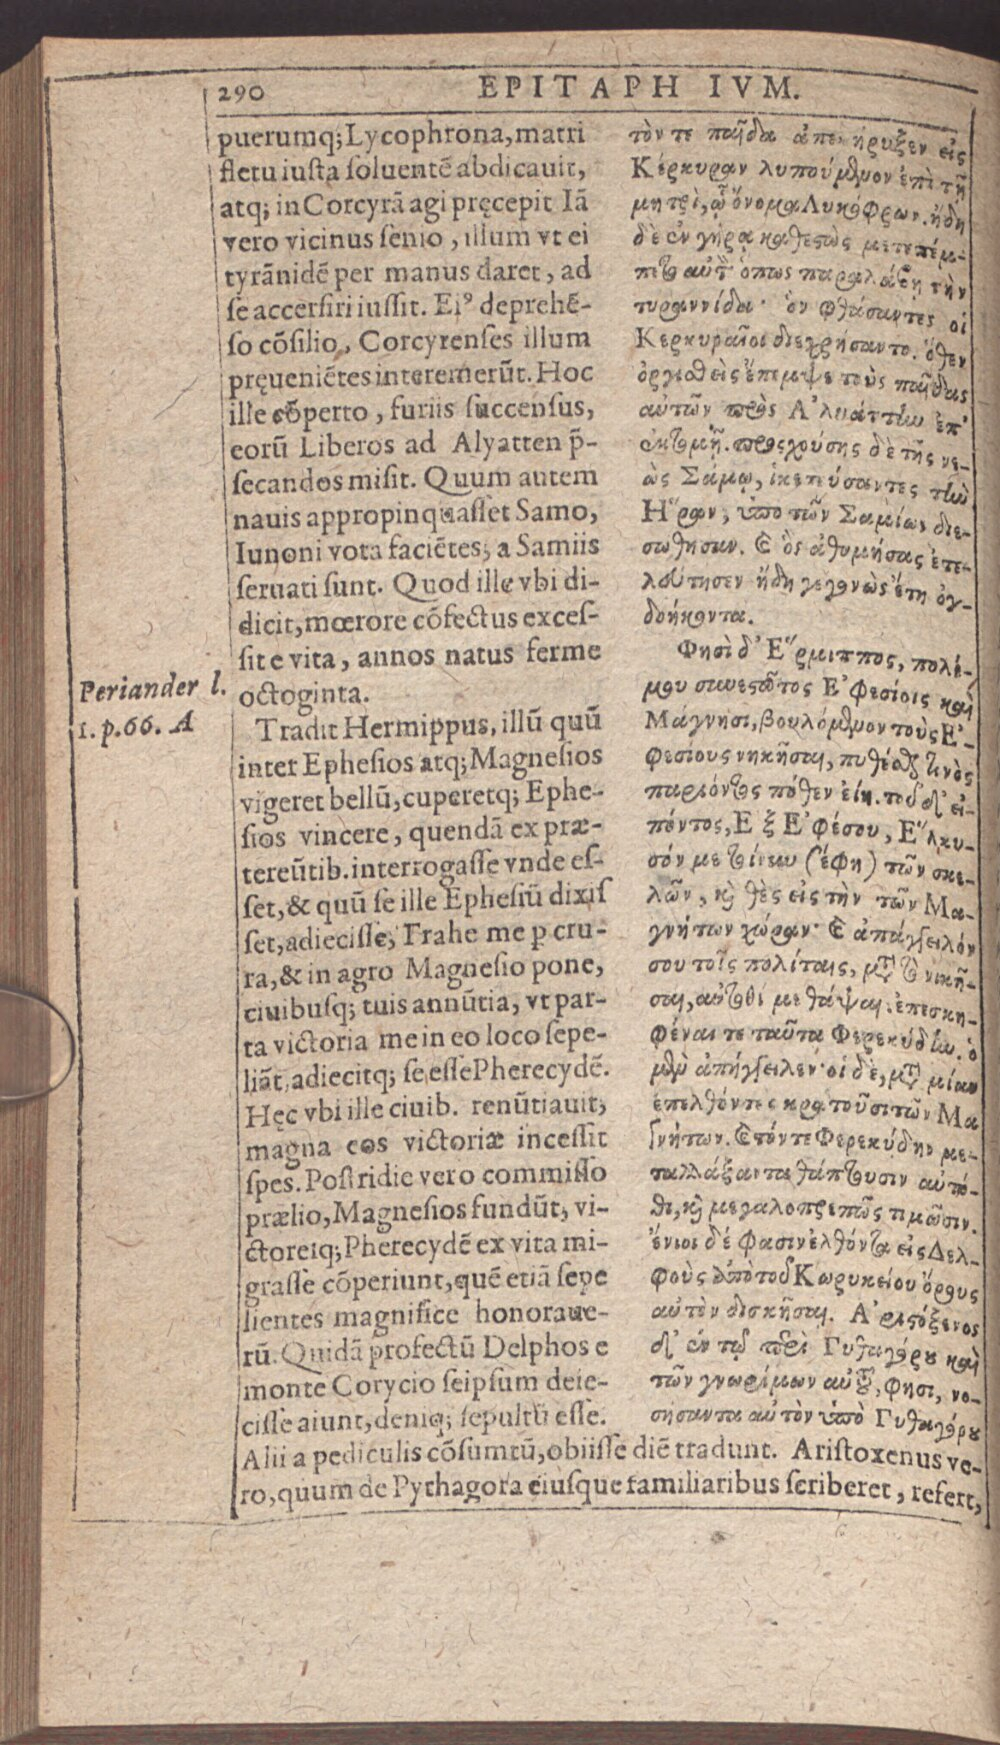 290 EPITAPHIVM.
puerumq; Lycophrona, matri
fletu iusta soluentē abdicauit,
atq; in Corcyrā agi pręcepit Iā
vero vicinus senio, illum vt ei
tyrānidē per manus daret, ad
se accersiri iussit. Eiꝰ deprehē-
so cōsilio, Corcyrenses illum
pręueniētes interemerūt. Hoc
ille cōperto, furiis succensus,
eorū Liberos ad Alyatten p̄-
secandos misit. Quum autem
nauis appropinquasset Samo,
Iunoni vota faciētes, a Samiis
seruati sunt. Quod ille vbi di-
dicit, mœrore cōfectus exces-
sit e vita, annos natus ferme
octoginta.
Periander l.
1. p. 66. A
Tradit Hermippus, illū quū
inter Ephesios atq; Magnesios
vigeret bellū, cuperetq; Ephe-
sios vincere, quendā ex præ-
tereūtib. interrogasse vnde es-
set, & quū se ille Ephesiū dixis
set, adiecisse, Trahe me p cru-
ra, & in agro Magnesio pone,
ciuibusq; tuis annūtia, vt par-
ta victoria me in eo loco sepe-
liāt, adiecitq; se esse Pherecydē.
Hęc vbi ille ciuib. renūtiauit,
magna eos victoriæ incessit
spes. Postridie vero commisso
prælio, Magnesios fundūt, vi-
ctoreiq; Pherecydē ex vita mi-
grasse cōperiunt, quē etiā sepe
lientes magnifice honoraue-
rū. Quidā profectū Delphos e
monte Corycio seipsum deie-
cisse aiunt, deniq; sepultū esse.
τόν τε παῖδα ἀπεκήρυξεν εἰς
Κέρκυραν λυπούμενον ἐπὶ τῇ
μητρὶ, ᾧ ὄνομα Λυκόφρων. ἤδη
δὲ ἐν γήρᾳ καθεστὼς μετεπέμ-
πετο αὐτὸν ὅπως παραλάβῃ τὴν
τυραννίδα· ὃν φθάσαντες οἱ
Κερκυραῖοι διεχρήσαντο. ὅθεν
ὀργισθεὶς ἔπεμψε τοὺς παῖδας
αὐτῶν πρὸς Ἀλυάττην ἐπ'
ἐκτομῇ. προσχούσης δὲ τῆς νε-
ὼς Σάμῳ, ἱκετεύσαντες τὴν
Ἥραν, ὑπὸ τῶν Σαμίων διε-
σώθησαν. Καὶ ὃς ἀθυμήσας ἐτε-
λεύτησεν ἤδη γεγονὼς ἔτη ὀγ-
δοήκοντα.
Φησὶ δ' Ἕρμιππος, πολέ-
μου συνεστῶτος Ἐφεσίοις καὶ
Μάγνησι, βουλόμενον τοὺς Ἐ-
φεσίους νικῆσαι, πυθέσθαι τινὸς
παριόντος πόθεν εἴη. τοῦ δ' εἰ-
πόντος, Ἐξ Ἐφέσου, Ἕλκυ-
σόν με τοίνυν (ἔφη) τῶν σκε-
λῶν, καὶ θὲς εἰς τὴν τῶν Μα-
γνήτων χώραν· Καὶ ἀπάγγειλόν
σου τοῖς πολίταις, μετὰ τὸ νικῆ-
σαι, αὐτόθι με θάψαι. ἐπεσκη-
φέναι τε ταῦτα Φερεκύδην. ὁ
μὲν ἀπήγγειλεν· οἱ δὲ, μετὰ μίαν
ἐπελθόντες κρατοῦσι τῶν Μα
γνήτων. Καὶ τόν τε Φερεκύδην με-
ταλλάξαντα θάπτουσιν αὐτό-
θι, καὶ μεγαλοπρεπῶς τιμῶσιν.
ἔνιοι δέ φασιν ἐλθόντα εἰς Δελ-
φοὺς ἀπὸ τοῦ Κωρυκείου ὄρους
αὑτὸν δισκῆσαι. Ἀριστόξενος
δ' ἐν τῷ περὶ Πυθαγόρου καὶ
τῶν γνωρίμων αὐτοῦ, φησι, νο-
σήσαντα αὐτὸν ὑπὸ Πυθαγόρου
Alii a pediculis cōsumtū, obiisse diē tradunt. Aristoxenus ve-
ro, quum de Pythagora eiusque familiaribus scriberet, refert,